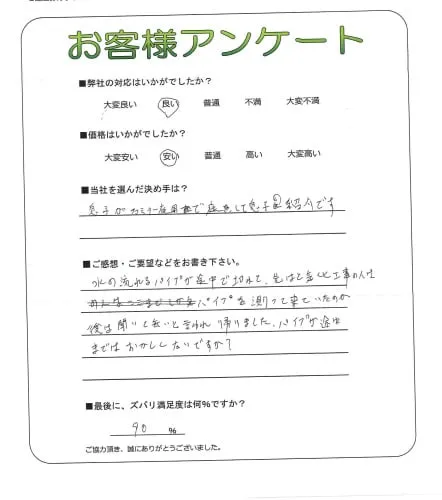 お客様アンケート
■弊社の対応はいかがでしたか?
大変良い 良い 普通 不満 大変不満
■価格はいかがでしたか?
大変安い 安い 普通 高い 大変高い
■当社を選んだ決め手は?
息子が で して息子の紹介です
■ご感想・ご要望などをお書き下さい。
水の流れるパイプが途中で切れて、 工事の人は
パイプを測って来ていたのか
後は聞いて無いと言われ帰りました。パイプが途中
まではおかしくないですか?
■最後に、ズバリ満足度は何%ですか?
90 %
ご協力頂き、誠にありがとうございました。